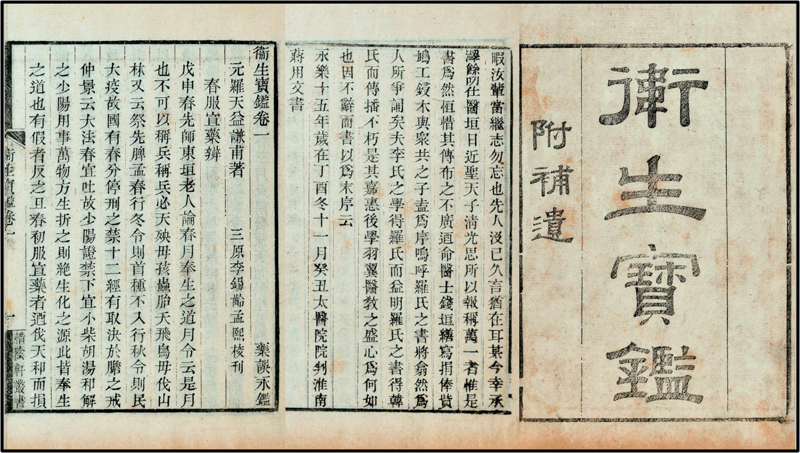 衞生寶鑑
附補遺
暇汝輩當繼志勿忘也先人沒已久言猶在耳某今幸承
澤餘叨仕醫垣日近聖天子清光思所以報稱萬一者惟是
書爲然恒惜其傳布之不廣迺命醫士錢垣繕寫捐俸貲
鳩工鋟木與衆共之子盍爲序嗚呼羅氏之書將翕然爲
人所爭誦矣夫李氏之學得羅氏而益明羅氏之書得韓
氏而傳播不朽是其嘉惠後學羽翼醫教之盛心爲何如
也因不辭而書以爲末序云
永樂十五年歲在丁酉冬十一月癸丑太醫院院判淮南
蔣用文書
衞生寶鑑卷一 藥誤永鑑
元羅天益謙甫著 三原李錫齡孟熙校刊
春服宣藥辨
戊申春先師東垣老人論春月奉生之道月令云是月
也不可以稱兵稱兵必天殃毋孩蟲胎夭飛鳥毋伐山
林又云祭先脾孟春行冬令則首種不入行秋令則民
大疫故國有春分停刑之禁十二經有取決於膽之戒
仲景云大法春宜吐故少陽證禁下宜小柴胡湯和解
之少陽用事萬物方生折之則絕生化之源此皆奉生
之道也有假者反之且春初服宣藥者迺伐天和而損
衞生寶鑑卷一
一
惜陰軒叢書